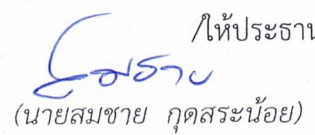 /ให้ประธาน
สมชาย
(นายสมชาย กุดสระน้อย)